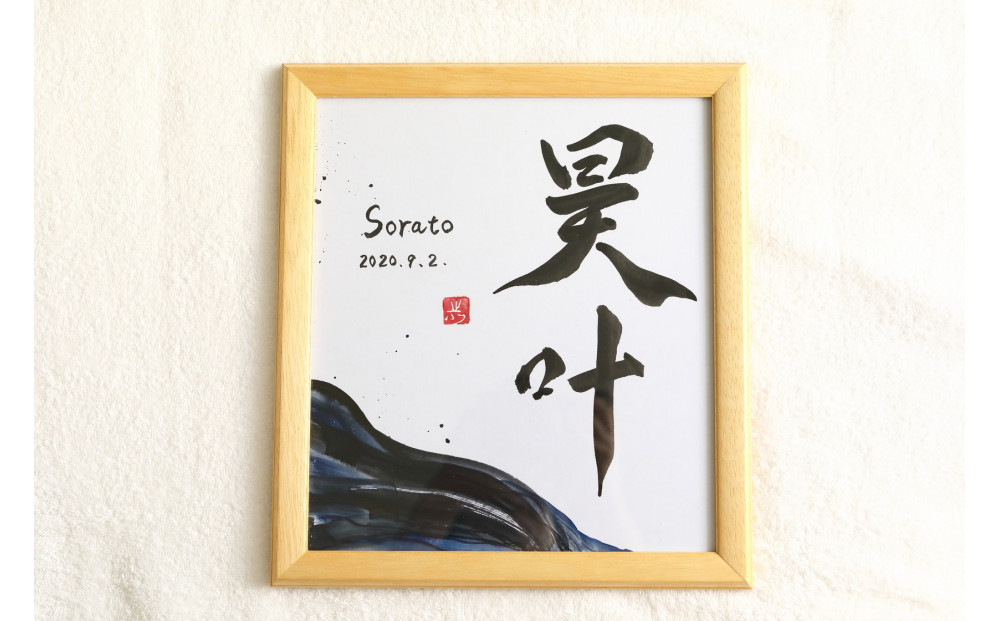 昊叶
Sorato
2020.9.2.